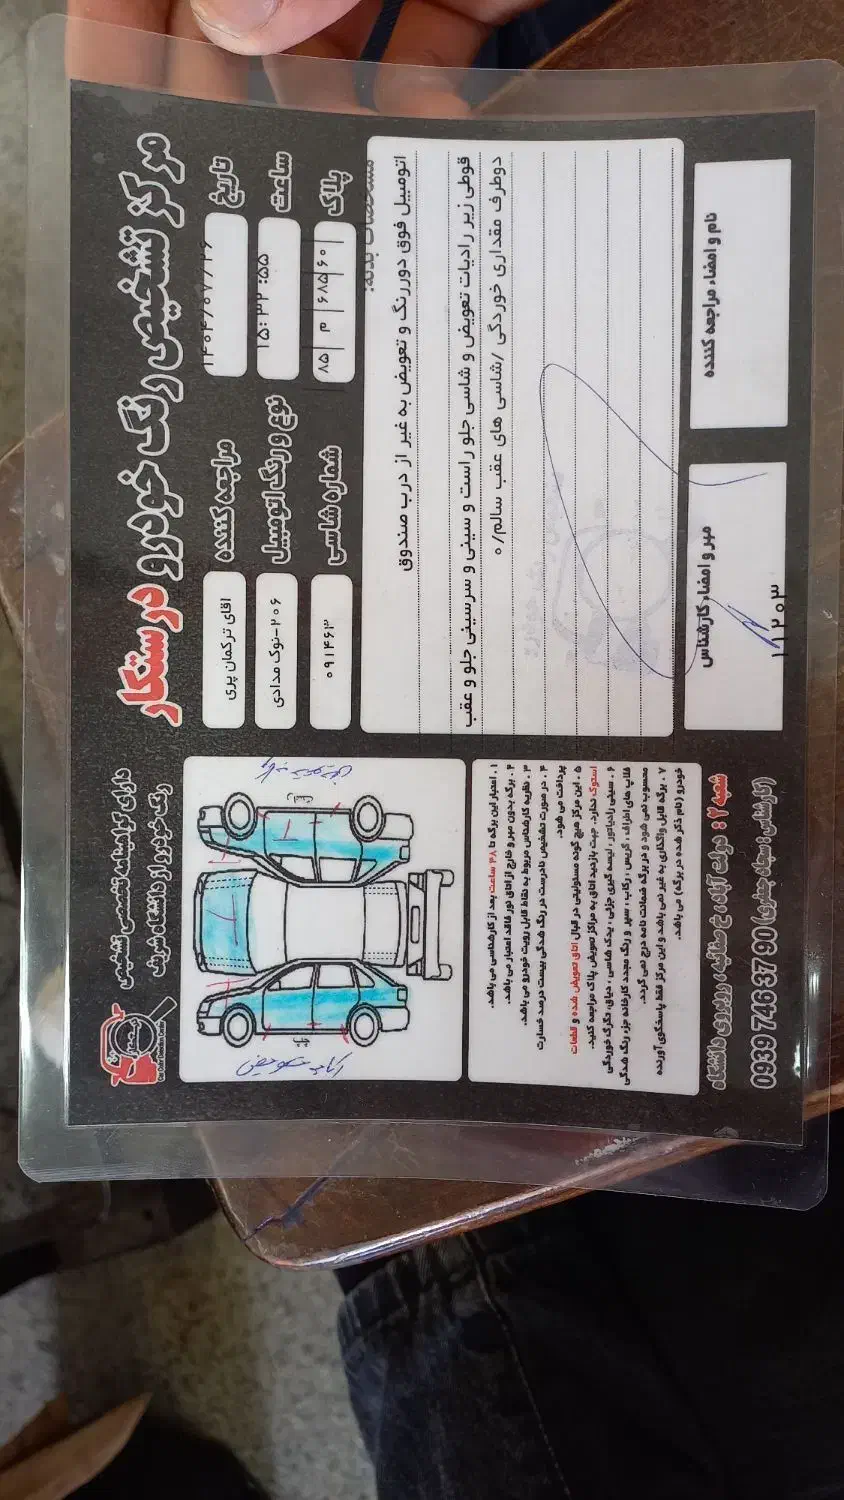 مرکز تشخیص رنگ خودرو درستکار
دارای گواهینامه تخصصی تشخیص
رنگ خودرو از دانشگاه شریف
تاریخ
۱۴۰۴/۰۷/۲۶
مراجعه کننده
اقای ترکمان پری
ساعت
۱۵:۳۲:۵۵
نوع و رنگ اتومبیل
۲۰۶-نوک مدادی
پلاک
۸۵ | م | ۶۸۵ | ۶۰
شماره شاسی
۰۹۱۴۶۳
مشخصات بدنه:
اتومبیل فوق دوررنگ و تعویض به غیر از درب صندوق
قوطی زیر رادیات تعویض و شاسی جلو راست و سینی و سرسینی جلو و عقب
دوطرف مقداری خوردگی /شاسی های عقب سالم/ه
نام و امضاء مراجعه کننده
مهر و امضاء کارشناس
۱۱۲۰۳
۱. اعتبار این برگه تا ۴۸ ساعت بعد از کارشناسی می باشد.
۲. برگه بدون مهر و خارج از اتاق نور فاقد اعتبار می باشد.
۳. نظریه کارشناس مربوط به نقاط قابل رویت خودرو می باشد.
۴. در صورت تشخیص نادرست در رنگ شدگی بیست درصد خسارت
پرداخت می شود.
۵. این مرکز هیچ گونه مسئولیتی در قبال اتاق تعویض شده و قطعات
استوک ندارد. جهت بازدید اتاق به مراکز تعویض پلاک مراجعه کنید.
۶. سینی رادیاتور، لیسه گیری جزئی، پدک شاسی، دیاق، دگرگ خوردگی
قالب های اطراف، گریس، رکاب، سپر و رنگ مجدد کارخانه جزء رنگ شدگی
محسوب نمی شود و در برگه ضمانت نامه درج نمی گردد.
۷. برگه قابل واگذاری به غیر نمی باشد و این مرکز فقط پاسخگوی آورنده
خودرو (نام ذکر شده در برگه) می باشد.
شعبه ۲: دولت آباد، خ صنائیه، روبروی دانشگاه
0939 746 37 90 (کارشناس: سجاد جعفری)